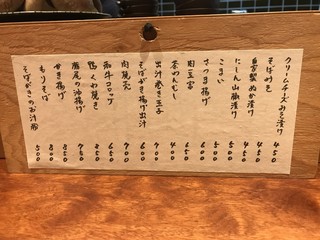 クリームチーズみそ漬け 450
そばみそ 450
自家製ぬか漬け 450
にしん山椒漬け 500
こまい 500
さつま揚げ 600
肉豆富 650
茶わんむし 400
出汁巻き玉子 700
そばがき揚げ出汁 600
肉焼売 700
和牛コロッケ 600
鴨くわ焼き 850
栃尾の油揚げ 750
かき揚げ 850
もりそば 800
そばがきのお汁粉 500